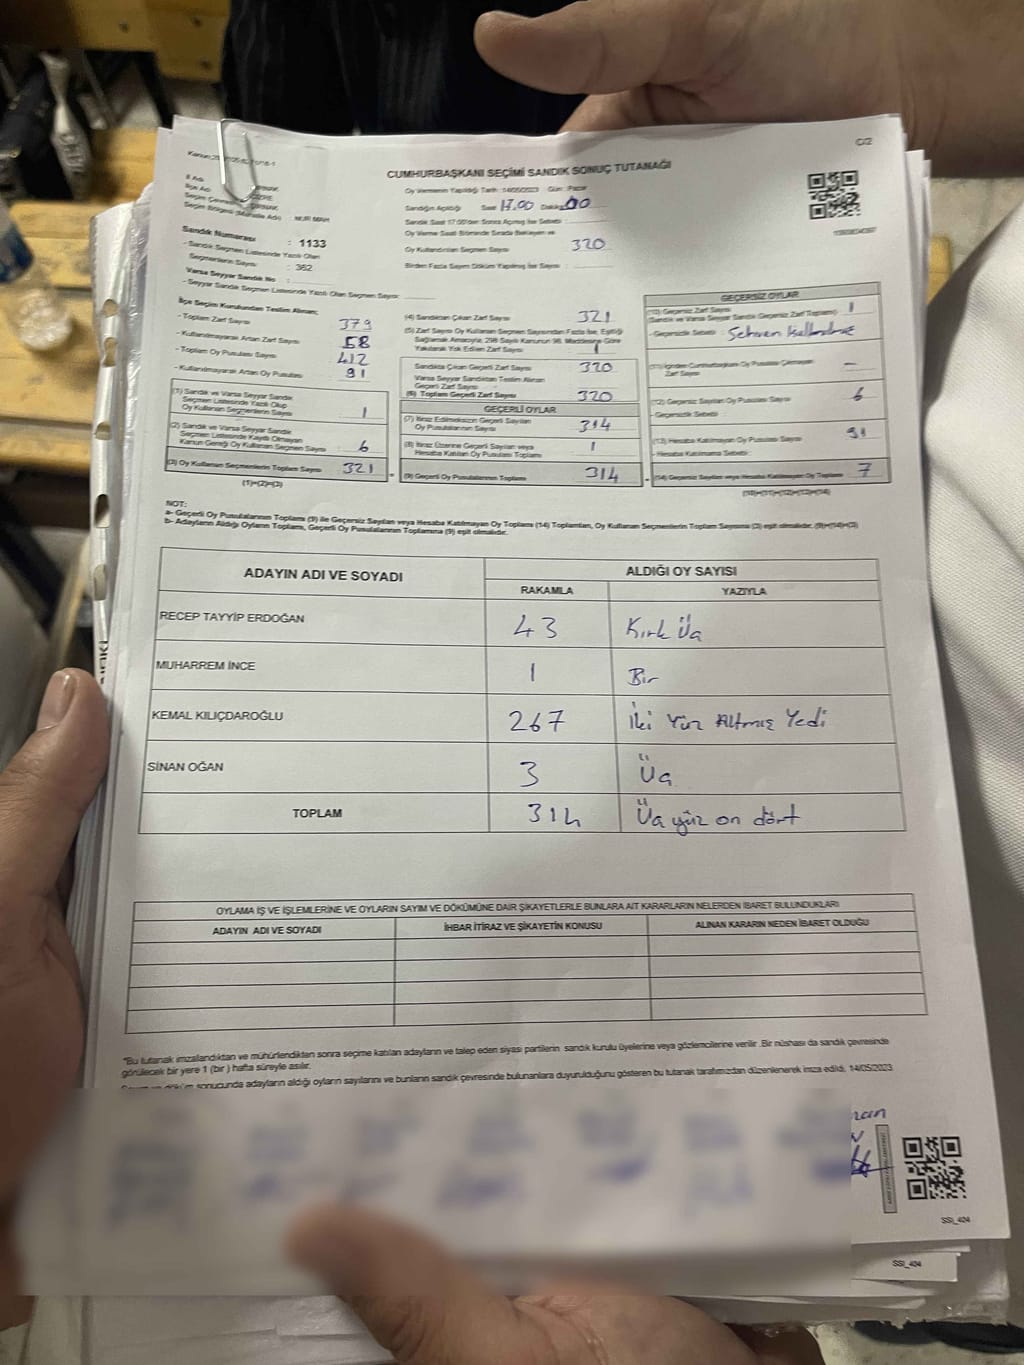 C/2
CUMHURBAŞKANI SEÇİMİ SANDIK SONUÇ TUTANAĞI
İl Adı
İlçe Adı : CİZRE
Seçim Bölgesi (Mahalle Adı) : NUR MAH
Oy Vermenin Yapıldığı Tarih : 14/05/2023 Gün : Pazar
Sandığın Açıldığı Saat 17.00 Dakika 00
Sandık Saat 17:00'den Sonra Açılmış İse Sebebi :
Oy Verme Saati Bitiminde Sırada Bekleyen ve
Oy Kullandırılan Seçmen Sayısı 320
Birden Fazla Sayım Döküm Yapılmış İse Sayısı :
Sandık Numarası : 1133
- Sandık Seçmen Listesinde Yazılı Olan
Seçmenlerin Sayısı : 362
Varsa Seyyar Sandık No :
- Seyyar Sandık Seçmen Listesinde Yazılı Olan Seçmen Sayısı:
İlçe Seçim Kurulundan Teslim Alınan;
- Toplam Zarf Sayısı 379
- Kullanılmayarak Artan Zarf Sayısı 58
- Toplam Oy Pusulası Sayısı 412
- Kullanılmayarak Artan Oy Pusulası 91
(1) Sandık ve Varsa Seyyar Sandık
Seçmen Listesinde Yazılı Olup
Oy Kullanan Seçmenlerin Sayısı 1
(2) Sandık ve Varsa Seyyar Sandık
Seçmen Listesinde Kayıtlı Olmayan
Kanun Gereği Oy Kullanan Seçmen Sayısı 6
(3) Oy Kullanan Seçmenlerin Toplam Sayısı 321
(1)+(2)=(3)
(4) Sandıktan Çıkan Zarf Sayısı 321
(5) Zarf Sayısı Oy Kullanan Seçmen Sayısından Fazla İse, Eşitliği
Sağlamak Amacıyla, 298 Sayılı Kanunun 98. Maddesine Göre
Yakılarak Yok Edilen Zarf Sayısı 1
Sandıkta Çıkan Geçerli Zarf Sayısı 320
Varsa Seyyar Sandıktan Teslim Alınan
Geçerli Zarf Sayısı
(6) Toplam Geçerli Zarf Sayısı 320
GEÇERLİ OYLAR
(7) İtiraz Edilmeksizin Geçerli Sayılan
Oy Pusulalarının Sayısı 314
(8) İtiraz Üzerine Geçerli Sayılan veya
Hesaba Katılan Oy Pusulası Toplamı 1
(9) Geçerli Oy Pusulalarının Toplamı 314
GEÇERSİZ OYLAR
(10) Geçersiz Zarf Sayısı
(Sandık ve Varsa Seyyar Sandık Geçersiz Zarf Toplamı) 1
- Geçersizlik Sebebi : Sehven
(11) İçinden Cumhurbaşkanı Oy Pusulası Çıkmayan
Zarf Sayısı -
(12) Geçersiz Sayılan Oy Pusulası Sayısı 6
- Geçersizlik Sebebi :
(13) Hesaba Katılmayan Oy Pusulası Sayısı 91
- Hesaba Katılmama Sebebi:
(14) Geçersiz Sayılan veya Hesaba Katılmayan Oy Toplamı 7
(10)+(11)+(12)+(13)=(14)
NOT:
a- Geçerli Oy Pusulalarının Toplamı (9) ile Geçersiz Sayılan veya Hesaba Katılmayan Oy Toplamı (14) Toplamları, Oy Kullanan Seçmenlerin Toplam Sayısına (3) eşit olmalıdır. (9)+(14)=(3)
b- Adayların Aldığı Oyların Toplamı, Geçerli Oy Pusulalarının Toplamına (9) eşit olmalıdır.
ADAYIN ADI VE SOYADI ALDIĞI OY SAYISI
RAKAMLA YAZIYLA
RECEP TAYYİP ERDOĞAN 43 Kırk Üç
MUHARREM İNCE 1 Bir
KEMAL KILIÇDAROĞLU 267 İki Yüz Altmış Yedi
SİNAN OĞAN 3 Üç
TOPLAM 314 Üç yüz on dört
OYLAMA İŞ VE İŞLEMLERİNE VE OYLARIN SAYIM VE DÖKÜMÜNE DAİR ŞİKAYETLERLE BUNLARA AİT KARARLARIN NELERDEN İBARET BULUNDUKLARI
ADAYIN ADI VE SOYADI İHBAR İTİRAZ VE ŞİKAYETİN KONUSU ALINAN KARARIN NEDEN İBARET OLDUĞU
*Bu tutanak imzalandıktan ve mühürlendikten sonra seçime katılan adayların ve talep eden siyasi partilerin sandık kurulu üyelerine veya gözlemcilerine verilir. Bir nüshası da sandık çevresinde
görülecek bir yere 1 (bir) hafta süreyle asılır.
sonucunda adayların aldığı oyların sayılarını ve bunların sandık çevresinde bulunanlara duyurulduğunu gösteren bu tutanak tarafımızdan düzenlenerek imza edildi. 14/05/2023
SSI_404
SSI_404